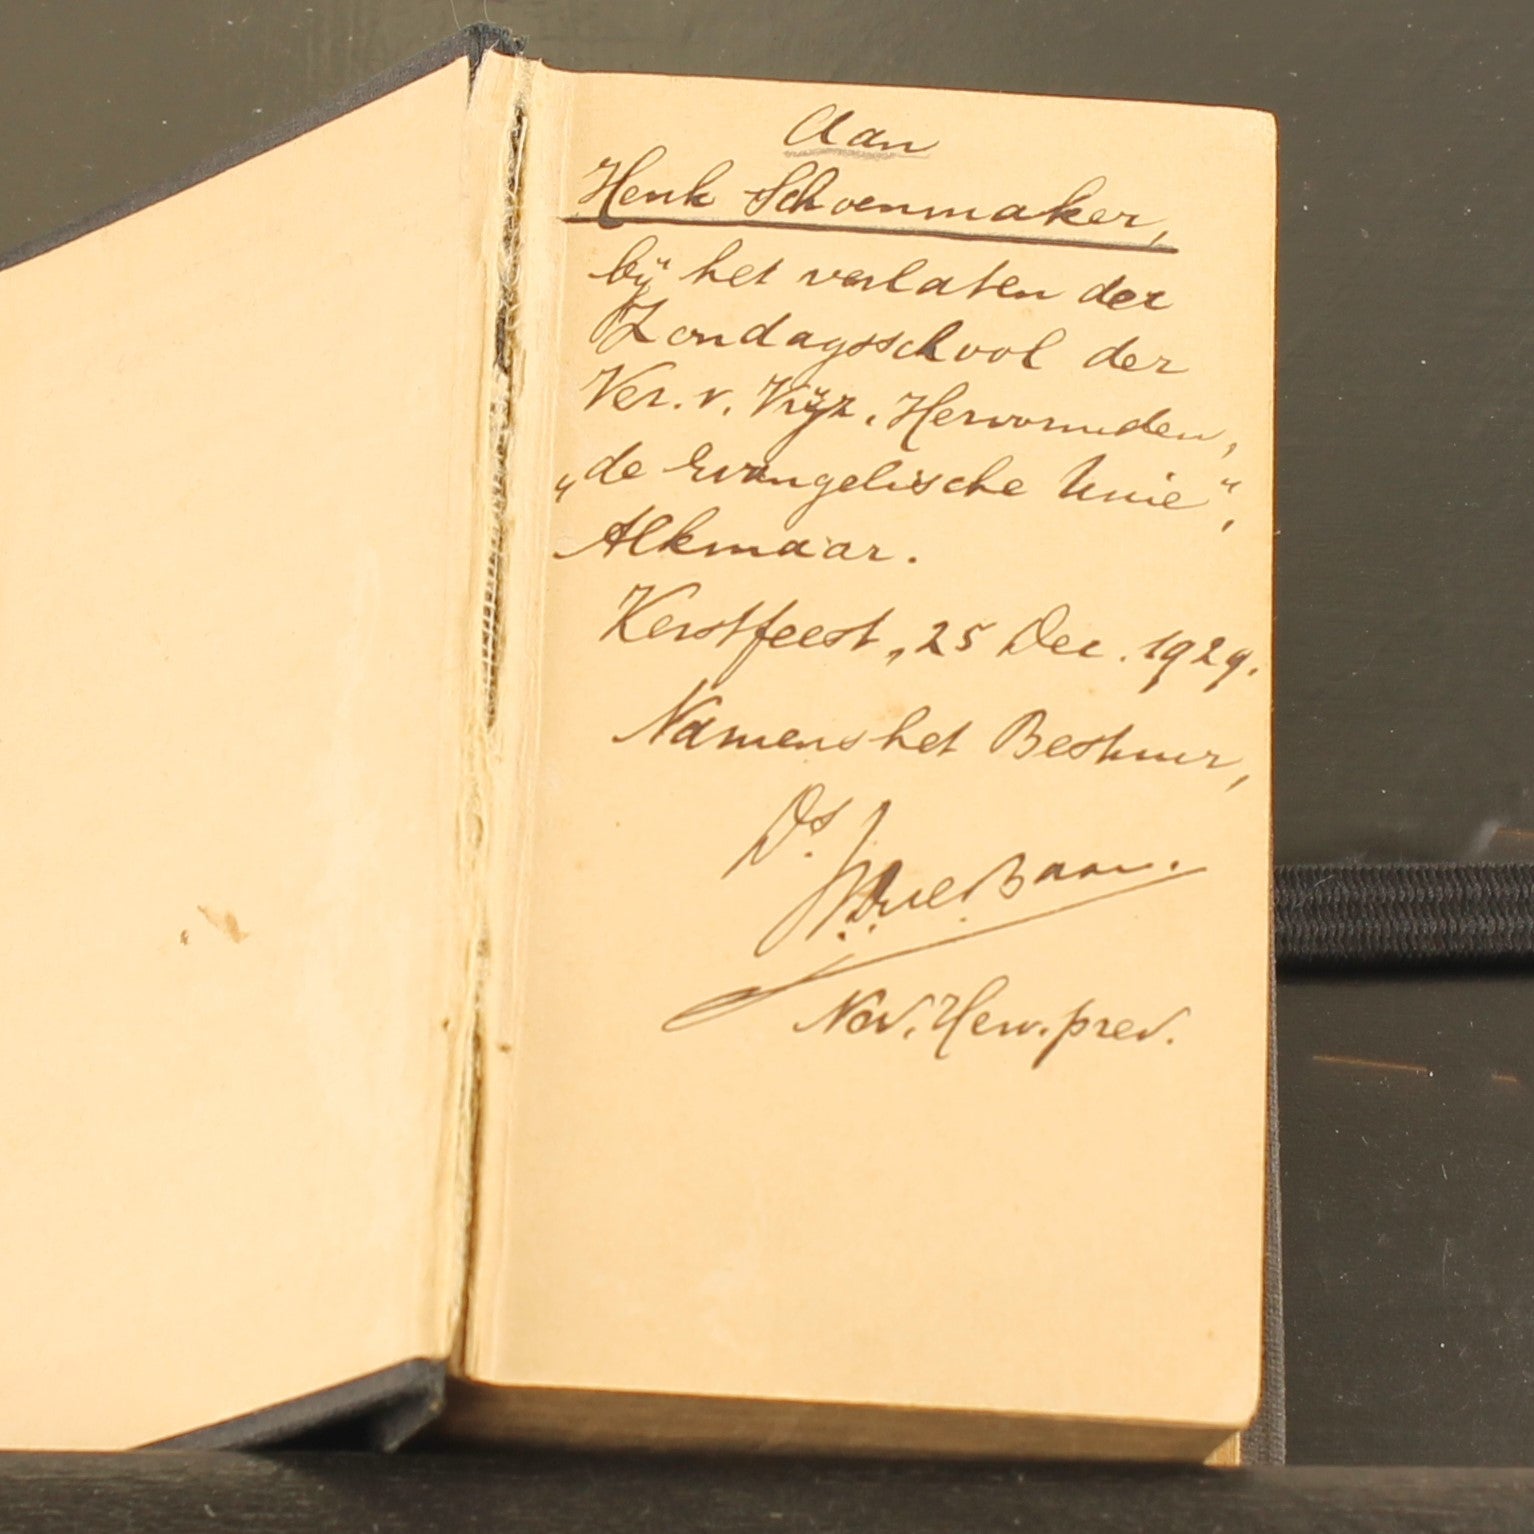 Aan
Henk Schoenmaker,
bij het verlaten der
Zondagsschool der
Ver. v. Vrijz. Hervormden,
„de Evangelische Unie“,
Alkmaar.
Kerstfeest, 25 Dec. 1929.
Namens het Bestuur,
Ds.
Ned. Herv. pred.